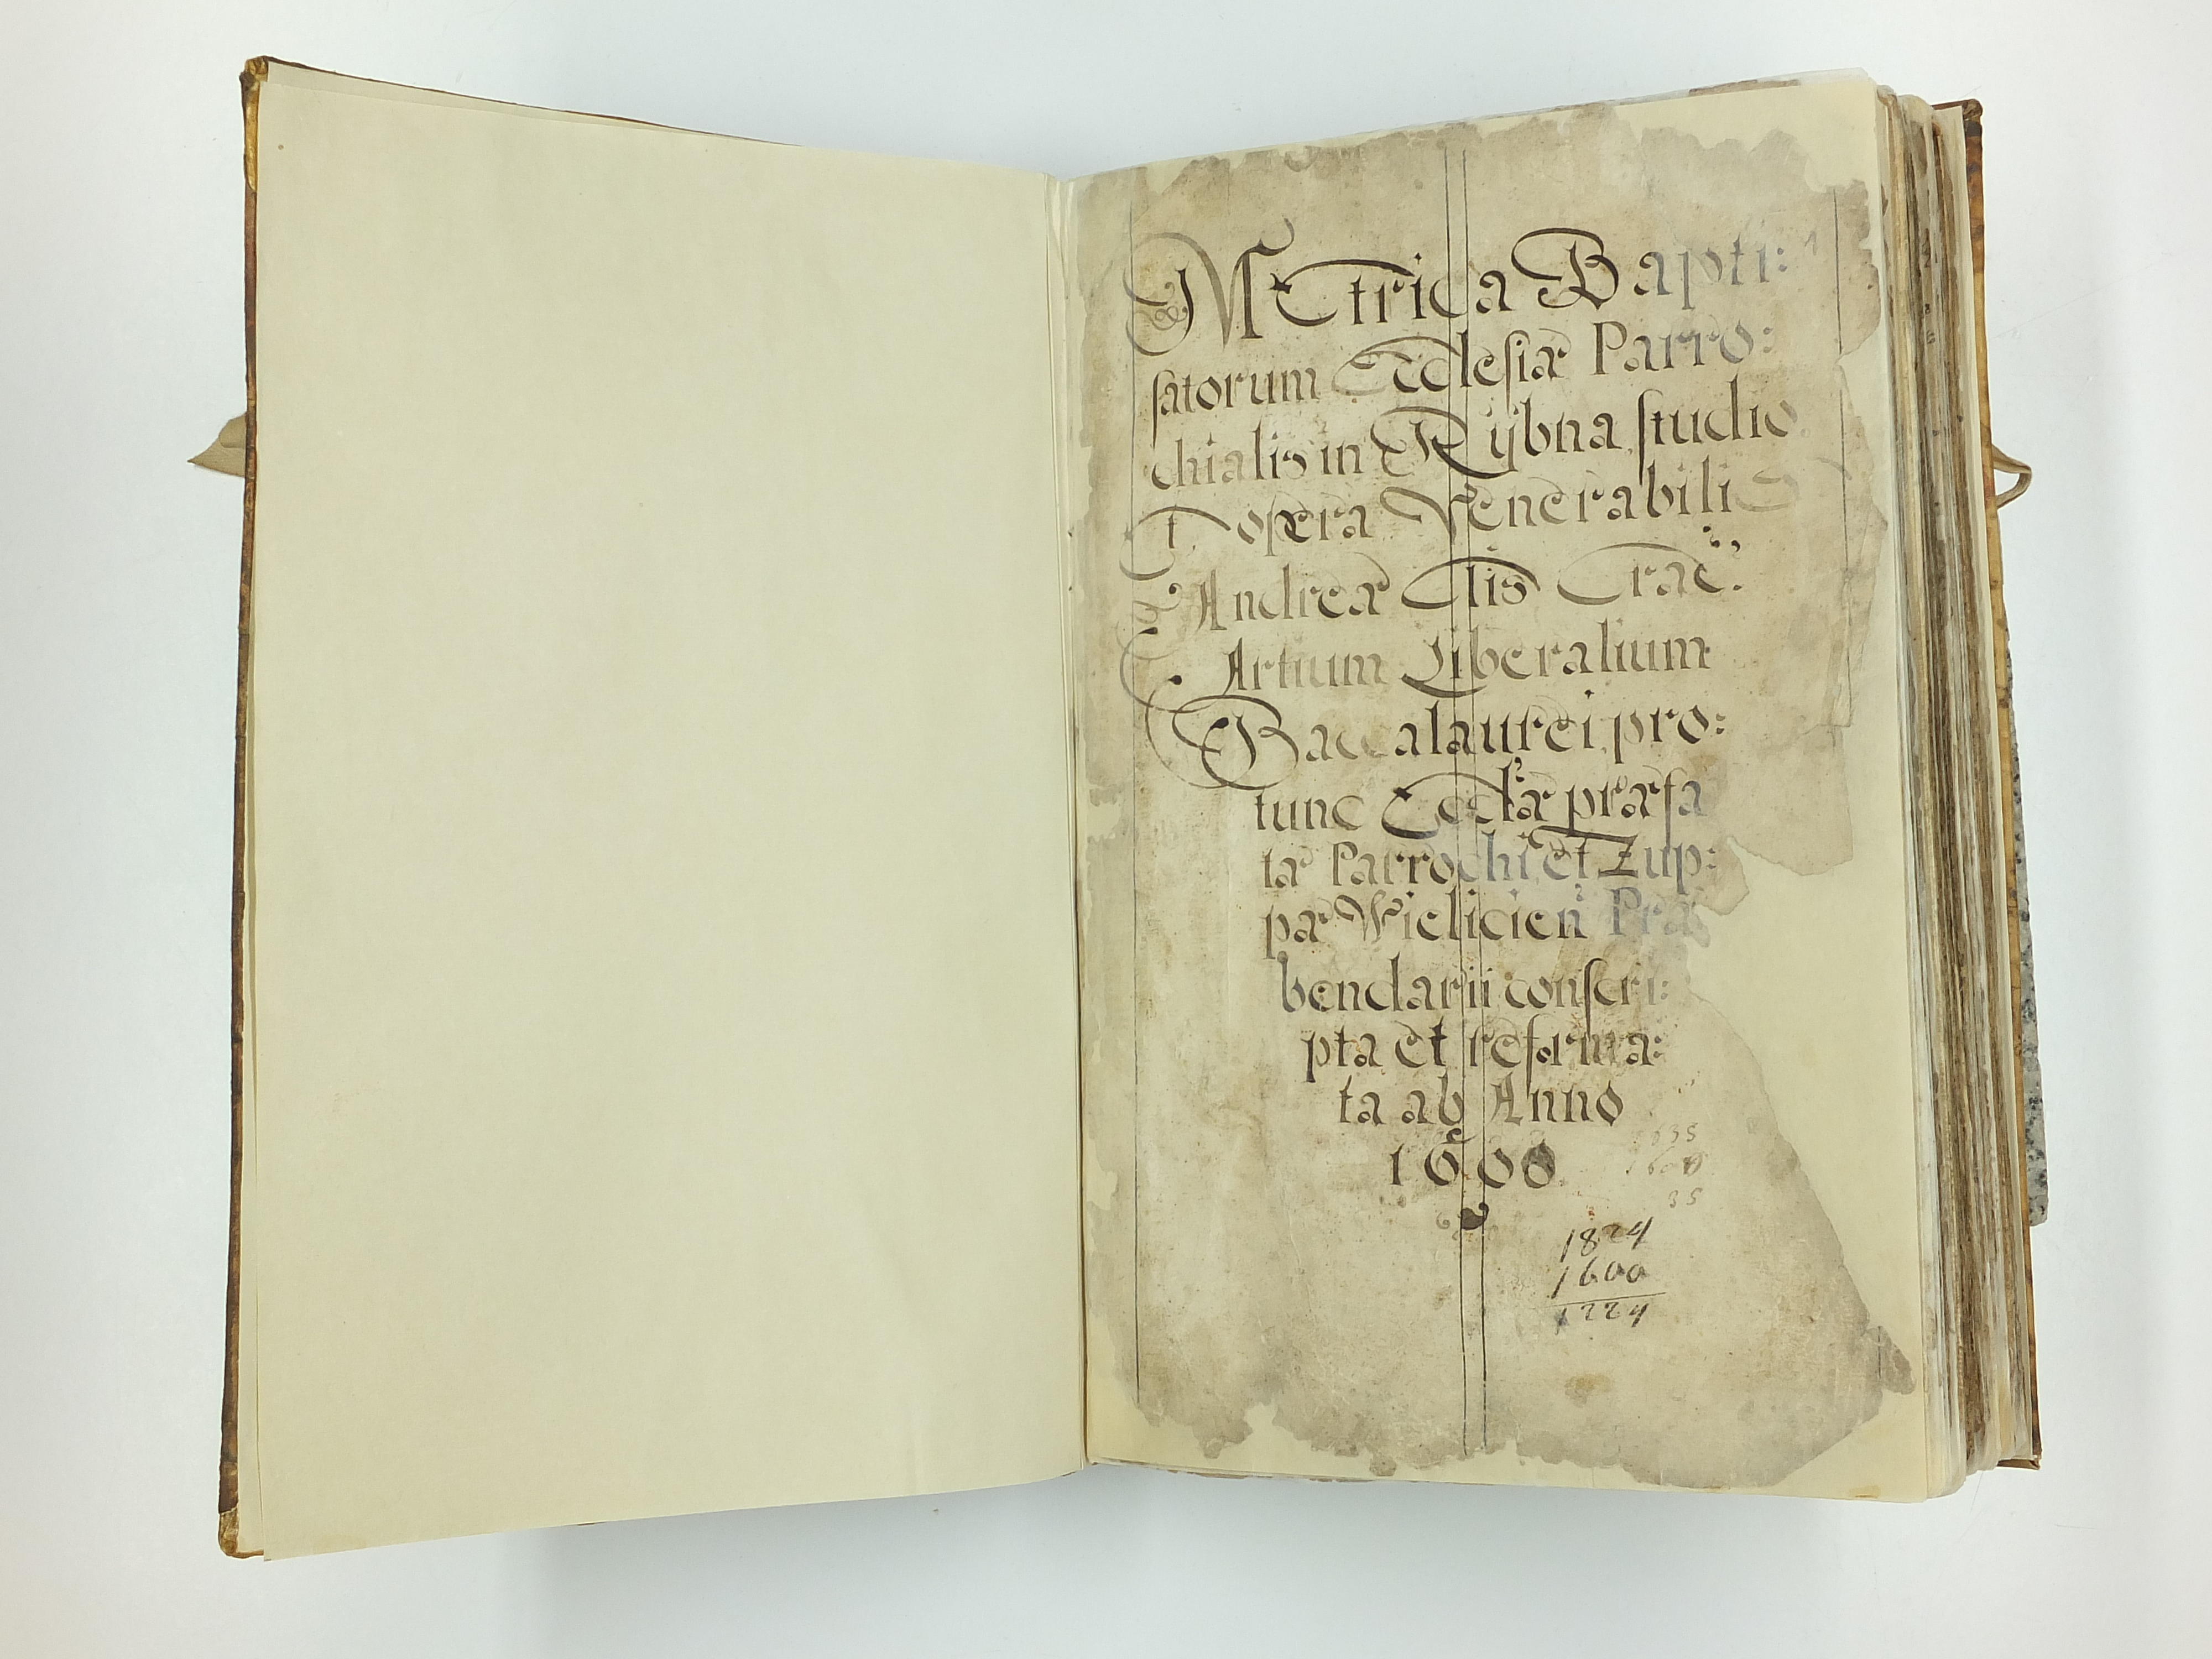 Metrica Bapti:
satorum Ecclesiæ Parro:
chialis in Rÿbna studio
Et opera Venerabilis
Andreæ Crac:
Artium Liberalium
Baccalaurei pro:
tunc Eccl'æ præfa
tæ Parrochi et Zup:
pæ Wieliciēn Præ
bendarii conscri:
pta et reforma:
ta ab Anno
1600
35
1824
1600
1224